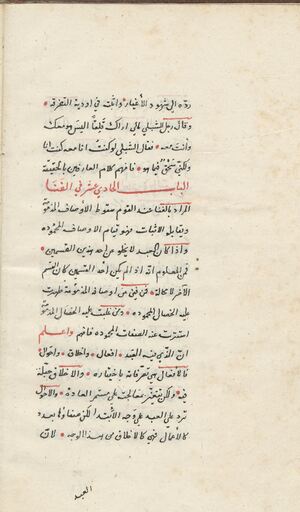 ردّه الى شهود الأغيار وانت في اودية التفرقة
وقال رجل للشبلي مالي اراك قلقًا اليس هو معك
وأنت معه فقال الشبلي لو كنت انا معه كنت انا
ولكني محوٌ فيما هو فافهم كلام العارفين بالحقيقة
الباب الحادي عشر في الفنا
المراد بالفنا عند القوم سقوط الاوصاف المذمومة
ويقابله الاثبات فهو قيام الاوصاف المحمودة
واذا كان العبد لا يخلو عن احد هذين القسمين
فمن المعلوم انه اذا لم يكن احد القسمين كان القسم
الآخر لا محالة فمن فني عن اوصافه المذمومة ظهرت
عليه الخصال المحمودة ومن غلبت عليه الخصال المذمومة
استترت عنه الصفات المحمودة فافهم واعلم
ان الذي فيه العبد افعال واخلاق واحوال
فالافعال هي تصرفاته باختياره والاخلاق جبلة
فيه ولكن تتغير بمعالجته على مستمر العادة والاحوال
ترد على العبد على وجه الابتدا لكن صفاؤها بعد
كالأعمال فهي كالاخلاق من هذا الوجه لان
العبد